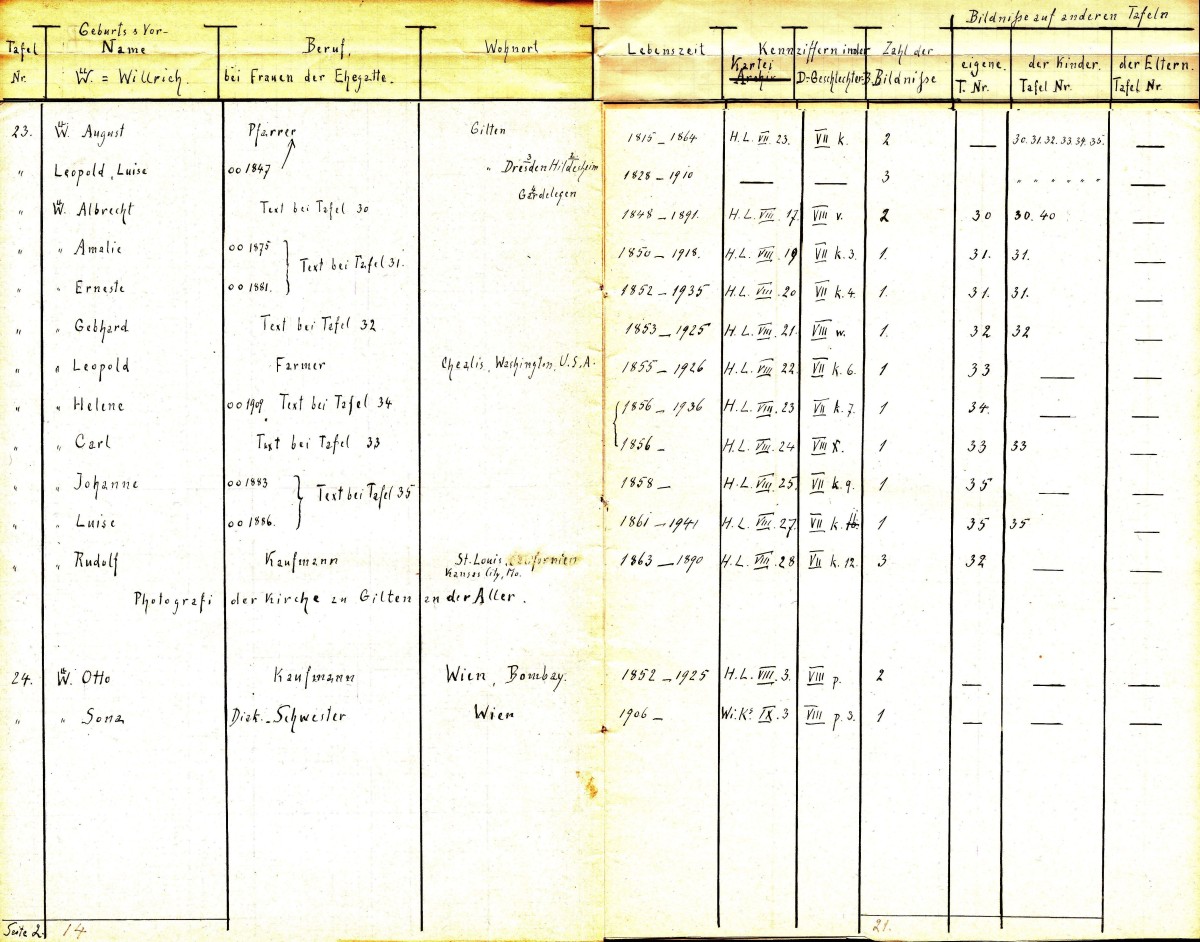 Bildnisse auf anderen Tafeln
Tafel Geburts- Vor- Name Beruf, Wohnort Lebenszeit Kennziffern in der Zahl der eigene der Kinder. der Eltern.
Nr. W. = Willrich. bei Frauen der Ehegatte. Kartei Archiv D. Geschlechter-B. Bildnisse T. Nr. Tafel Nr. Tafel Nr.
23. W. August Pfarrer Gilten 1815 – 1864 H. L. VII. 23. VII k. 2 — 30. 31. 32. 33. 34. 35. —
" Leopold, Luise oo 1847 " Dresden Hildesheim Gardelegen 1828 – 1910 — — 3 " " " " " " —
" W. Albrecht Text bei Tafel 30 1848 – 1891. H. L. VIII. 17. VIII v. 2 30 30. 40 —
" " Amalie oo 1875 Text bei Tafel 31. 1850 – 1918. H. L. VIII. 19 VII k. 3. 1. 31. 31. —
" " Erneste oo 1881. 1852 – 1935 H. L. VIII. 20 VII k. 4. 1. 31. 31. —
" " Gebhard Text bei Tafel 32 1853 – 1925 H. L. VIII. 21. VIII w. 1. 32 32 —
" " Leopold Farmer Chealis, Washington, U.S.A. 1855 – 1926 H. L. VIII. 22. VII k. 6. 1 33 — —
" " Helene oo 1909 Text bei Tafel 34 1856 – 1936 H. L. VIII. 23 VII k. 7. 1 34. — —
" " Carl Text bei Tafel 33 1856 – H. L. VIII. 24 VIII X. 1 33 33 —
" " Johanne oo 1883 Text bei Tafel 35 1858 – H. L. VIII. 25. VII k. 9. 1 35 — —
" " Luise oo 1886. 1861 – 1941 H. L. VIII. 27. VII k. 1 35 35 —
" " Rudolf Kaufmann St. Louis, Californien Kansas City, Mo. 1863 – 1890 H. L. VIII. 28 VII k. 12. 3 32 — —
Photografi der Kirche zu Gilten an der Aller.
24. W. Otto Kaufmann Wien, Bombay. 1852 – 1925 H. L. VIII. 3. VIII p. 2 — — —
" " Sona Diak.-Schwester Wien 1906 – Wi. Ks IX. 3 VIII p. 3. 1 — — —
Seite 2. 14 21.